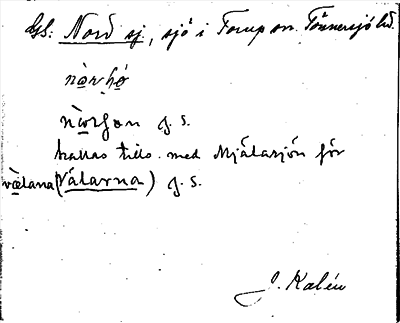 GS: Nord sj., sjö i Torup sn. Tönnersjö hd.
nòrhó
g. s.
kallas tills. med Mjälasjön för
vælana (Välarna) g. s.
J. Kalén